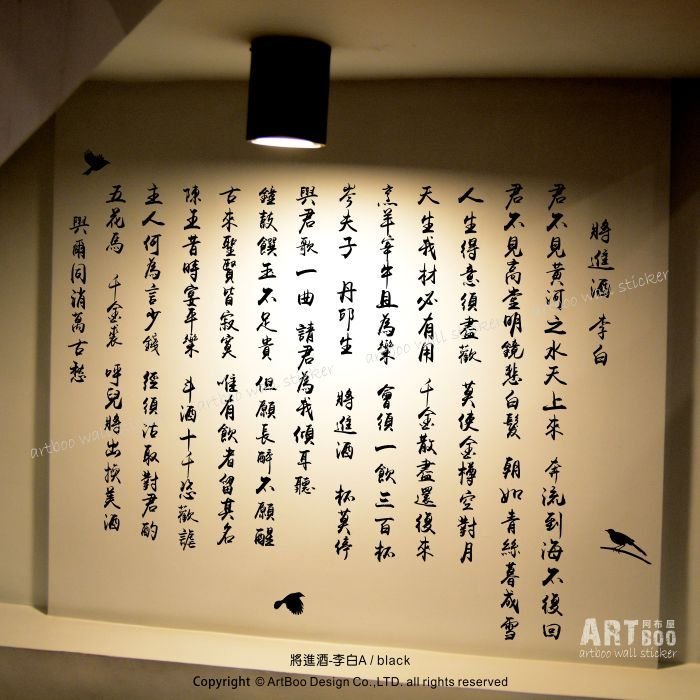 將進酒 李白
君不見黃河之水天上來 奔流到海不復回
君不見高堂明鏡悲白髮 朝如青絲暮成雪
人生得意須盡歡 莫使金樽空對月
天生我材必有用 千金散盡還復來
烹羊宰牛且為樂 會須一飲三百杯
岑夫子 丹邱生 將進酒 杯莫停
與君歌一曲 請君為我傾耳聽
鐘鼓饌玉不足貴 但願長醉不願醒
古來聖賢皆寂寞 惟有飲者留其名
陳王昔時宴平樂 斗酒十千恣歡謔
主人何為言少錢 徑須沽取對君酌
五花馬 千金裘 呼兒將出換美酒
與爾同消萬古愁
artboo wall sticker
artboo wall sticker
artboo wall sticker
artboo wall sticker
ARTBOO 阿布屋
artboo wall sticker
將進酒-李白A / black
Copyright © ArtBoo Design Co.,LTD. all rights reserved